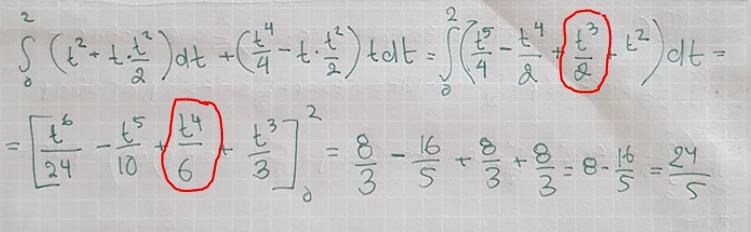 ∫₀² (t² + t·t²/2)dt + (t⁴/4 - t·t²/2) t dt = ∫₀² (t⁵/4 - t⁴/2 + t³/2 + t²) dt =
= [t⁶/24 - t⁵/10 + t⁴/6 + t³/3]₀² = 8/3 - 16/5 + 8/3 + 8/3 = 8 - 16/5 = 24/5